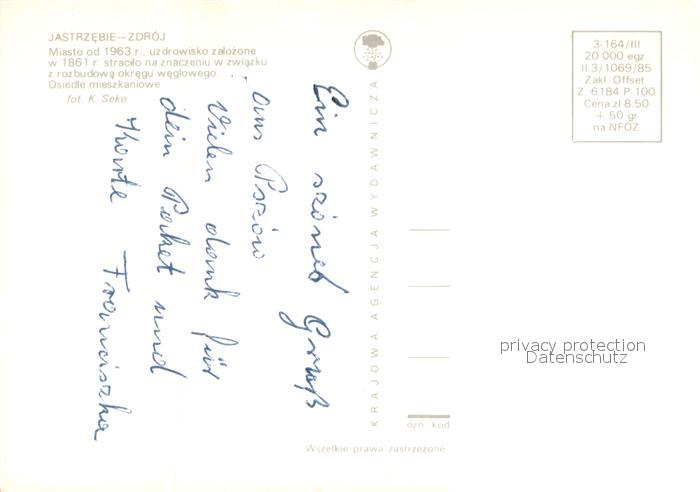 JASTRZĘBIE—ZDRÓJ
Miasto od 1963 r., uzdrowisko założone
w 1861 r. straciło na znaczeniu w związku
z rozbudową okręgu węglowego.
Osiedle mieszkaniowe
fot. K. Seko
Ein szönes Gruß
aus Pszów
Vielen dank für
dein Paket und
Karte Franciszka
KRAJOWA AGENCJA WYDAWNICZA
3-164/III
20 000 egz.
II 3/1069/85
Zakł. Offset.
Z. 6184 P-100
Cena zł 8,50
+ 50 gr
na NFOZ
privacy protection
Datenschutz
ozn. kod
Wszelkie prawa zastrzeżone